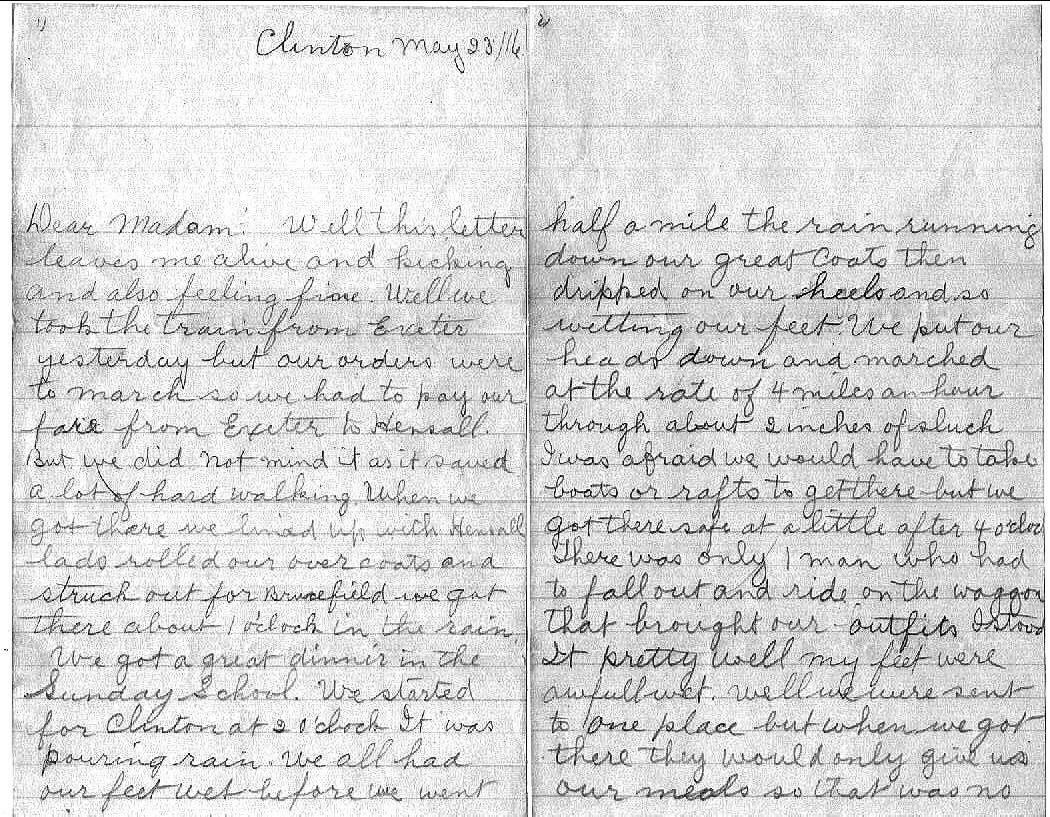 1)
Clinton May 23/16
Dear Madam: Well this letter
leaves me alive and kicking
and also feeling fine. Well we
took the train from Exeter
yesterday but our orders were
to march so we had to pay our
fare from Exeter to Hensall.
But we did not mind it as it saved
a lot of hard walking. When we
got there we lined up with Hensall
lads rolled our over coats and
struck out for Brucefield we got
there about 1 o'clock in the rain
We got a great dinner in the
Sunday School. We started
for Clinton at 2 o'clock It was
pouring rain. We all had
our feet wet before we went
2)
half a mile the rain running
down our great coats then
dripped on our heels and so
wetting our feet. We put our
heads down and marched
at the rate of 4 miles an hour
through about 2 inches of sluch
I was afraid we would have to take
boats or rafts to get there but we
got there safe at a little after 4 o'cloc
There was only 1 man who had
to fall out and ride on the waggon
that brought our outfits I stood
It pretty well my feet were
awfull wet. Well we were sent
to one place but when we got
there they would only give us
our meals so that was no